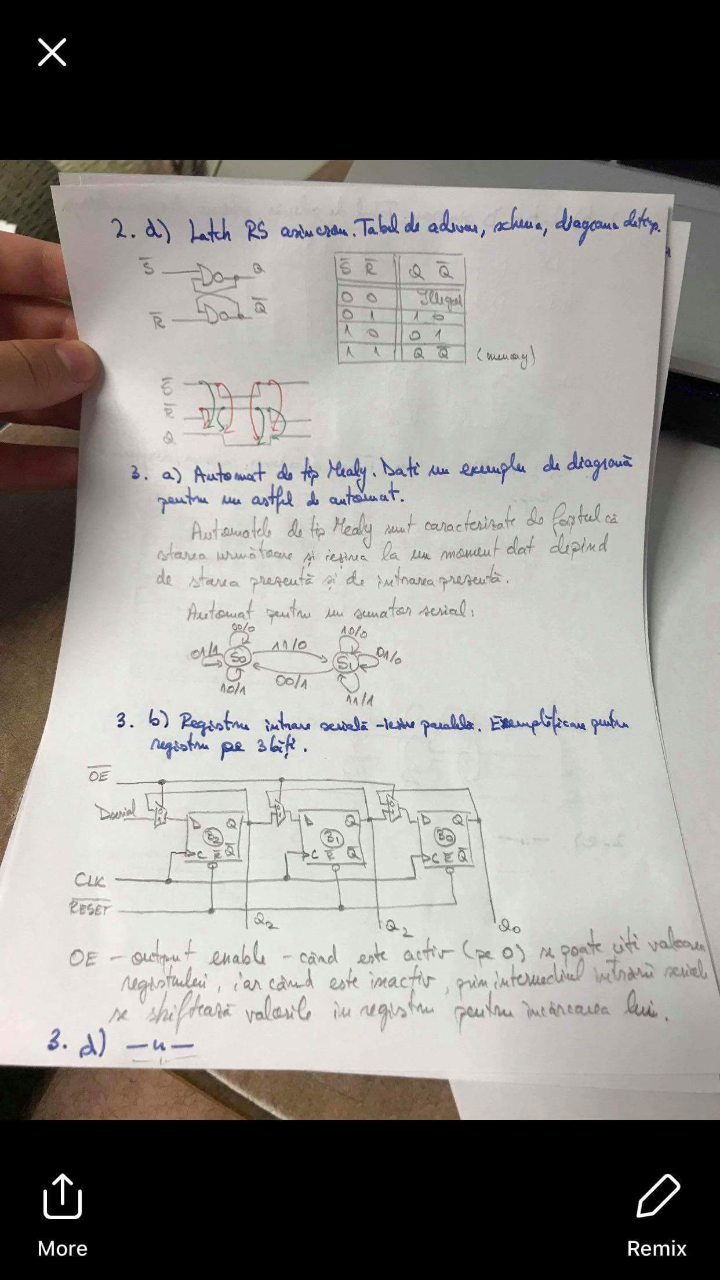 2. d) Latch RS asincron. Tabel de adevăr, schema, diagrama de timp.
S̅ Q
R̅ Q̅
S̅ R̅ Q Q̅
0 0 Illegal
0 1 1 0
1 0 0 1
1 1 Q Q̅ (memory)
S̅
R̅
Q
3. a) Automat de tip Mealy. Dati un exemplu de diagramă
pentru un astfel de automat.
Automatele de tip Mealy sunt caracterizate de faptul că
starea următoare și ieșirea la un moment dat depind
de starea prezentă și de intrarea prezentă.
Automat pentru un sumator serial:
00/0 11/0 10/0
01/1 S0 S1 01/0
10/1 00/1 11/1
3. b) Registru intrare serială - ieșire paralelă. Exemplificare pentru
registru pe 3 biți.
O̅E̅
Dserial D Q D Q D Q
B2 B1 B0
C R̅ Q̅ C R̅ Q̅ C R̅ Q̅
CLK
R̅E̅S̅E̅T̅
Q2 Q2 Q0
OE - output enable - când este activ (pe 0) se poate citi valoarea
registrului, iar când este inactiv, prin intermediul intrării seriale
se shiftează valorile în registru pentru încărcarea lui.
3. d) —u—